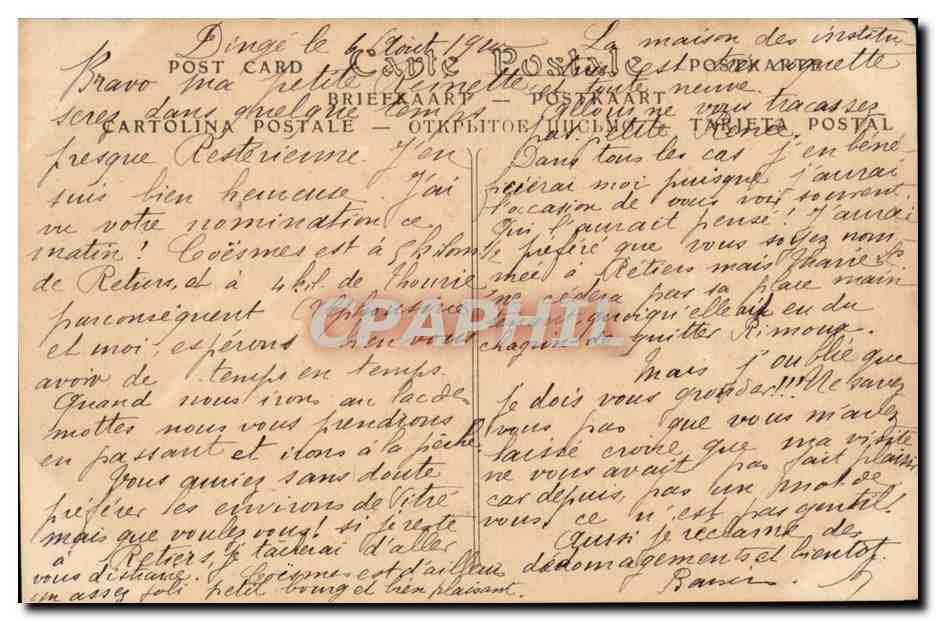 Dingé le 6 Août 19
POST CARD Carte Postale POSTKARTE
BRIEFKAART — POSTKAART
CARTOLINA POSTALE — ОТКРЫТОЕ ПИСЬМО — TARJETA POSTAL
Bravo ma petite
serez dans quelque temps
presque Restérienne. J'en
suis bien heureuse. J'ai
vu votre nomination ce
matin! Coësmes est à 5 kilom 1/2
de Retiers et à 4 kil. de Thourie
par conséquent
et moi, espérons bien vous
avoir de temps en temps.
Quand nous irons au lac des
mottes nous vous prendrons
en passant et irons à la pêche
Vous auriez sans doute
préférer les environs de Vitré
mais que voulez vous! si je reste
à Retiers, je tâcherai d'aller
vous distraire. Coësmes est d'ailleurs
un assez joli petit bourg et bien plaisant.
La maison des institu-
est très coquette
et toute neuve.
Allons ne vous tracassez
pas petite
Dans tous les cas j'en béné-
ficierai moi puisque j'aurai
l'occasion de vous voir souvent.
Qui l'aurait pensé! J'aurai
préféré que vous soyez nom-
mée à Rétiers mais Marie
ne cédera pas sa place main
tenant quoiqu'elle ait eu du
chagrin de quitter Rimoux.
Mais j'oublie que
je dois vous gronder!!! Ne savez
vous pas que vous m'avez
laissé croire que ma visite
ne vous avait pas fait plaisir
car depuis, pas un mot de
vous, ce n'est pas gentil!
Aussi je réclame des
dédomagements et bientôt.
Baisers.
CPAPHIL